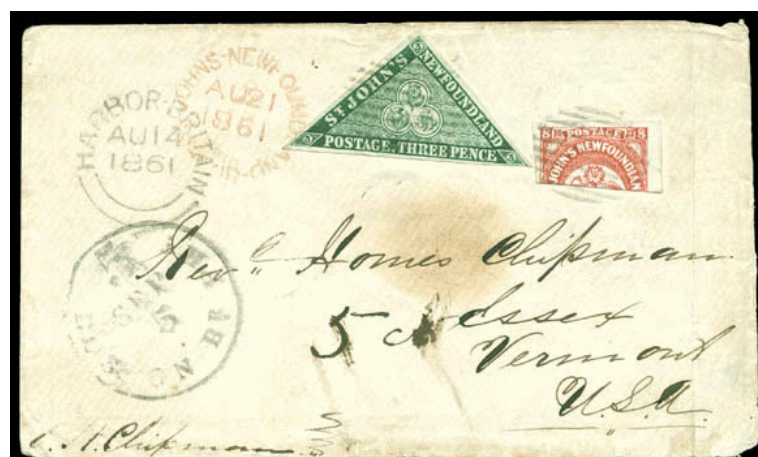 HARBOR-BRITAIN
AU14
1861
JOHNS-NEWFOUNDLAND
AU21
1861
3 ST JOHN'S 3 NEWFOUNDLAND 3
POSTAGE, THREE PENCE
8 POSTAGE 8
JOHN'S NEWFOUNDLAN
Revd Homes Chipman
5 Essex
Vermont
U.S.A
Chipman